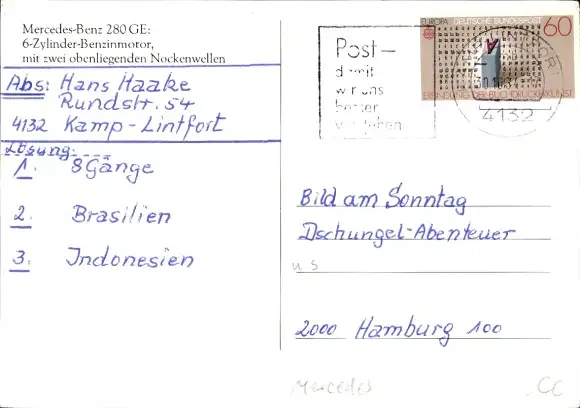 Mercedes-Benz 280 GE:
6-Zylinder-Benzinmotor,
mit zwei obenliegenden Nockenwellen
Abs: Hans Haake
Rundstr. 54
4132 Kamp-Lintfort
Lösung:
1. 8 Gänge
2. Brasilien
3. Indonesien
Post-
damit
wir uns
besser
verstehen
EUROPA DEUTSCHE BUNDESPOST 60
ERFINDUNG DER BUCHDRUCKERKUNST
4132
Bild am Sonntag
Dschungel-Abenteuer
2000 Hamburg 100
Mercedes